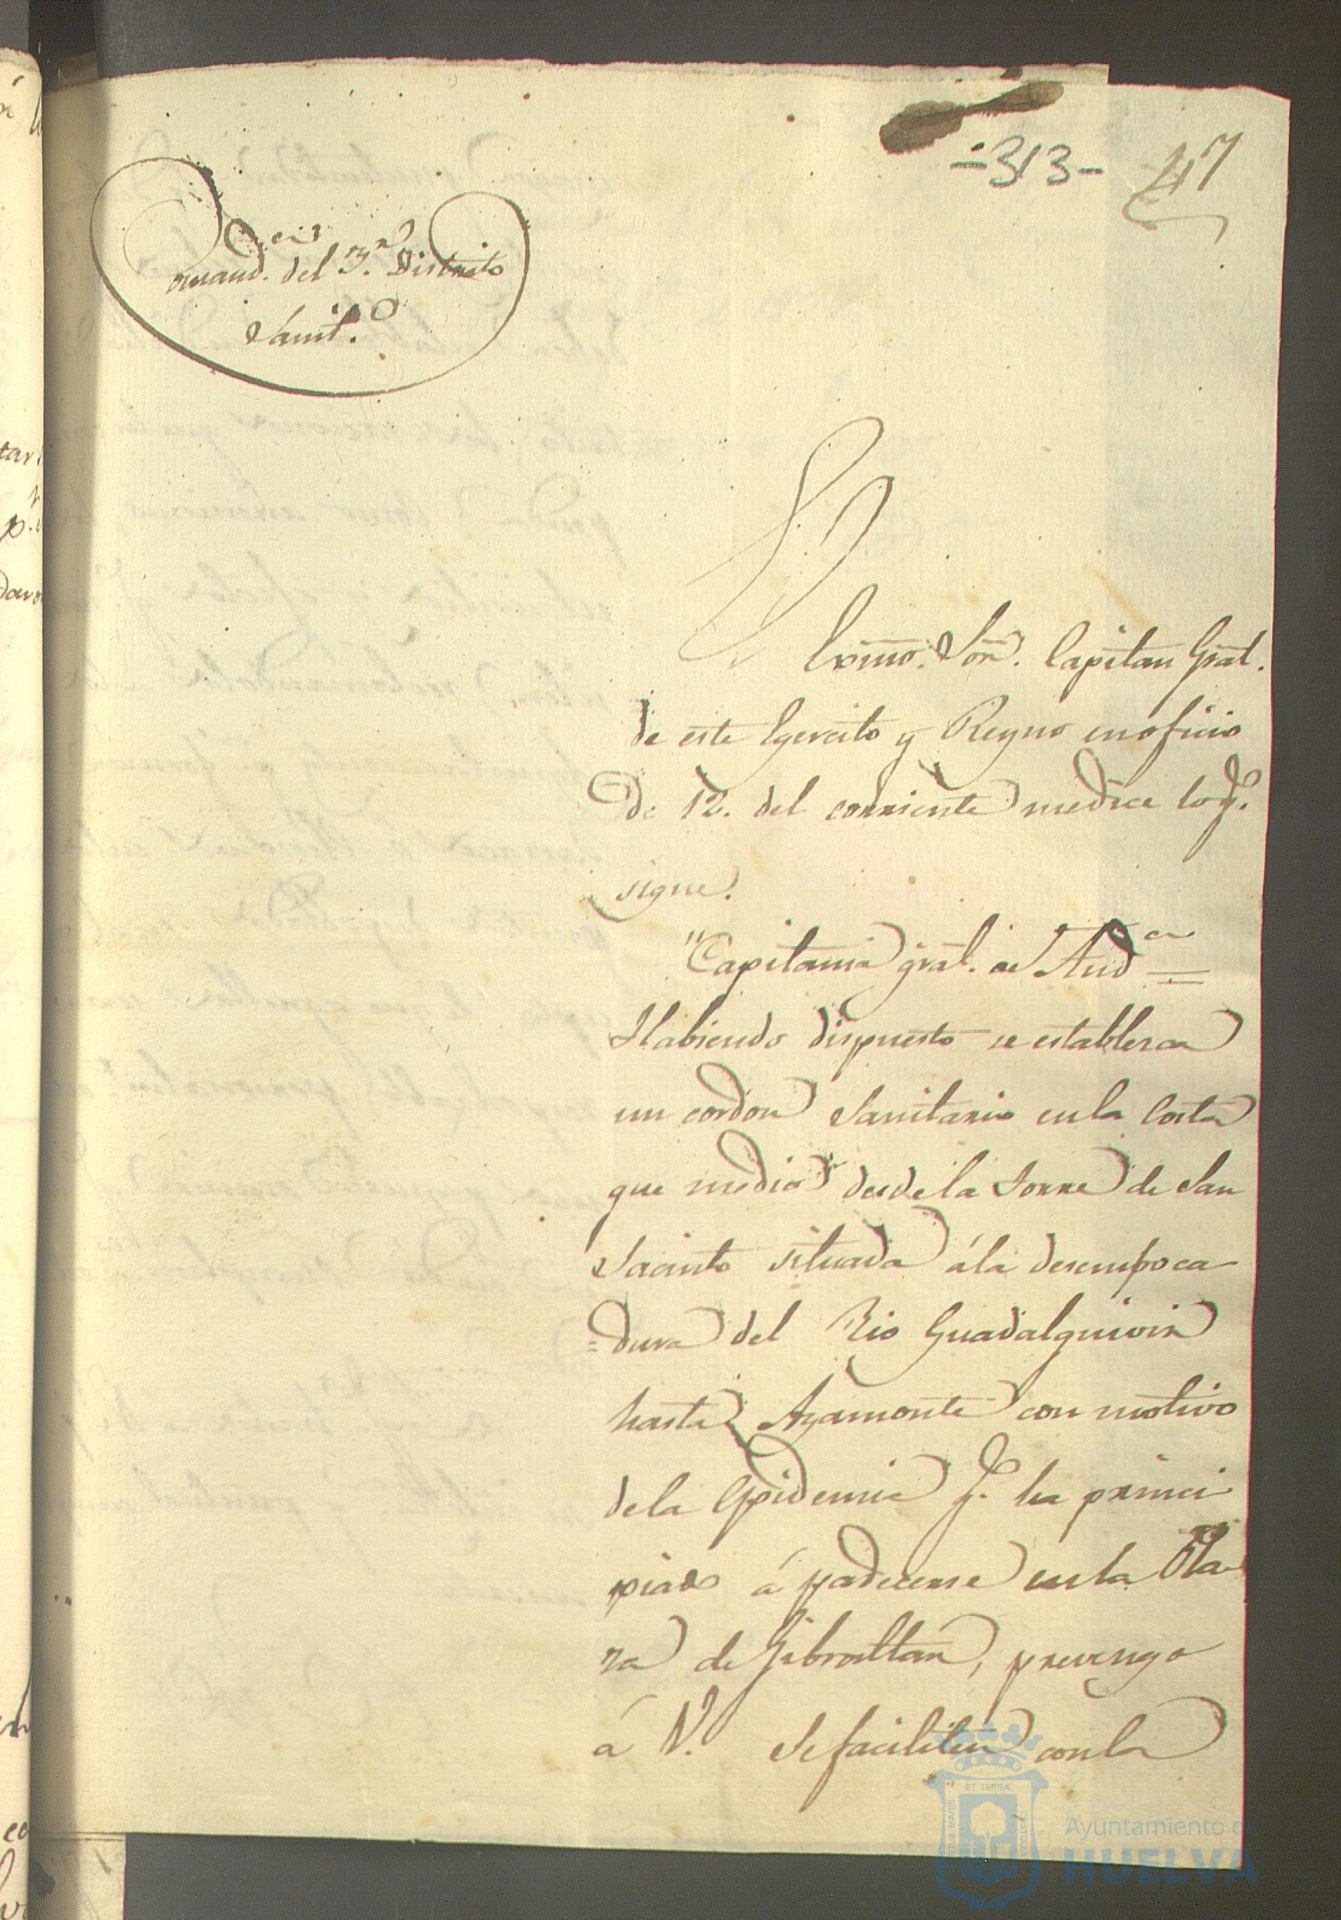 -313- 47
Comand.cia del 3.er Distrito
Sanit.o
El Exmo. Sor. Capitan Gral.
de este Egercito y Reyno en oficio
de 12. del corriente me dice lo q.e
sigue.
"Capitania gral. de And.ca =
Habiendo dispuesto se establesca
un cordon Sanitario en la Costa
que media desde la Torre de San
Jacinto situada á la desemboca
=dura del Rio Guadalquivir
hasta Ayamonte con motivo
de la Epidemia q.e ha princi
piado á padecerse en la Pla
za de Gibralltar, prevengo
á V. se faciliten con la
ET TERRA
Ayuntamiento de
HUELVA